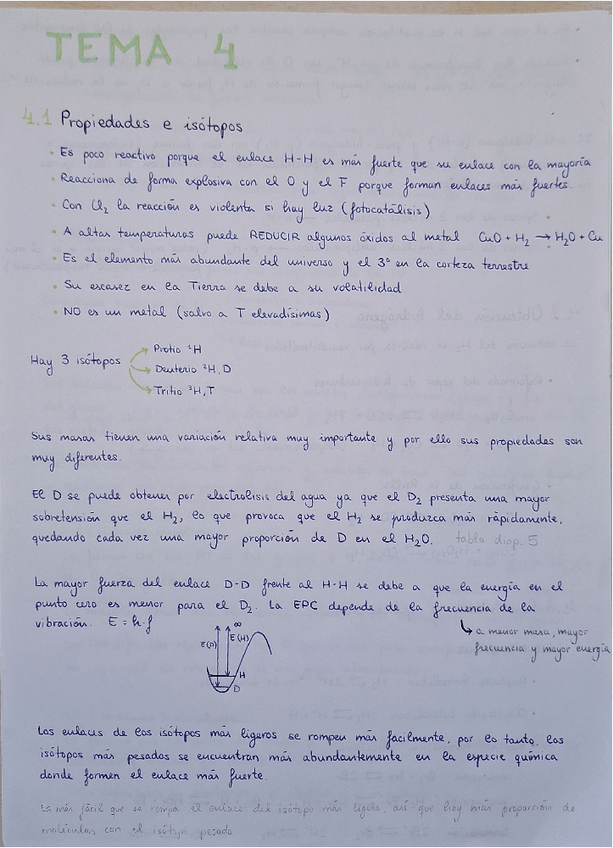 TEMA 4
4.1 Propiedades e isótopos
· Es poco reactivo porque el enlace H-H es más fuerte que su enlace con la mayoría
· Reacciona de forma explosiva con el O y el F porque forman enlaces más fuertes.
· Con Cl₂ la reacción es violenta si hay luz (fotocatálisis)
· A altas temperaturas puede REDUCIR algunos óxidos al metal CuO + H₂ → H₂O + Cu
· Es el elemento más abundante del universo y el 3º en la corteza terrestre
· Su escasez en la Tierra se debe a su volatilidad
· NO es un metal (salvo a T elevadísimas)
Hay 3 isótopos
Protio ¹H
Deuterio ²H, D
Tritio ³H, T
Sus masas tienen una variación relativa muy importante y por ello sus propiedades son
muy diferentes.
El D se puede obtener por electrolisis del agua ya que el D₂ presenta una mayor
sobretensión que el H₂, lo que provoca que el H₂ se produzca más rápidamente,
quedando cada vez una mayor proporción de D en el H₂O. tabla diap. 5
La mayor fuerza del enlace D-D frente al H-H se debe a que la energía en el
punto cero es menor para el D₂. La EPC depende de la frecuencia de la
vibración. E = h·f
↳ a menor masa, mayor
frecuencia y mayor energía
∞
E(D) E(H)
H
D
Los enlaces de los isótopos más ligeros se rompen más facilmente, por lo tanto, los
isótopos más pesados se encuentran más abundantemente en la especie química
donde formen el enlace más fuerte.
La más fácil que se rompa el enlace del isótopo más ligero, así que hay más proporción de
moléculas con el isótopo pesado